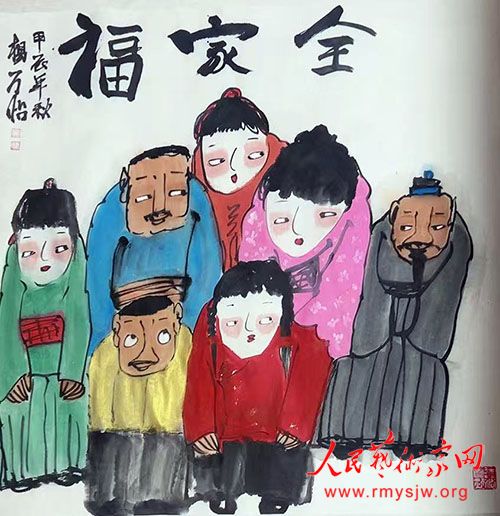 全家福
甲辰年秋
人民藝術家网
www.rmysjw.org